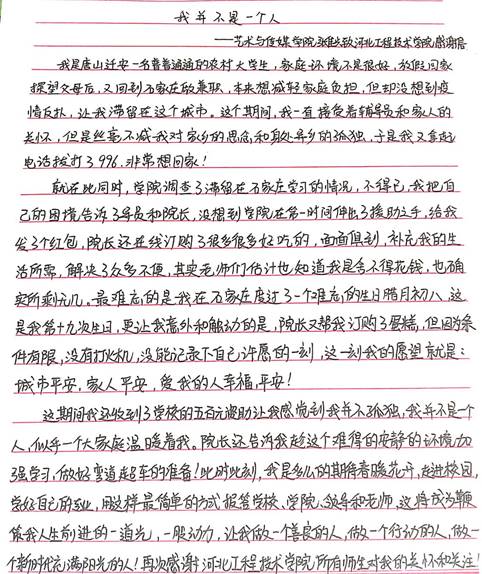 我并不是一个人
——艺术与传媒学院张致河北工程技术学院感谢信
我是唐山迁安一名普普通通的农村大学生，家庭环境不是很好，放假回家
探望父母后，又回到石家庄做兼职，本来想减轻家庭负担，但却没想到疫
情反扑，让我滞留在这个城市。这个期间，我一直接受着辅导员和家人的
关怀，但是丝毫不减我对家乡的思念和身处异乡的孤独，于是我又拿起
电话拨打了996，非常想回家！
就在此同时，学院调查了滞留在石家庄学习的情况，不得已，我把自
己的困境告诉了导员和院长，没想到学院在第一时间伸出了援助之手，给我
发了个红包，院长还在线订购了很多很多好吃的，面面俱到，补充我的生
活所需，解决了众多不便，其实老师们估计也知道我是舍不得花钱，也确
实所剩无几。最难忘的是我在石家庄度过了一个难忘的生日腊月初八，这
是我第十九次生日，更让我意外和触动的是，院长又帮我订购了蛋糕，但因为条
件有限，没有打火机，没能记录下自己许愿的一刻，这一刻我的愿望就是：
城市平安，家人平安，爱我的人幸福，平安！
这期间我还收到了学校的五百元资助让我感觉到我并不孤独，我并不是一个
人，似乎一个大家庭温暖着我。院长还告诉我趁这个难得的安静的环境加
强学习，做好弯道超车的准备！此时此刻，我是多么的期待春暖花开，走进校园，
学好自己的专业，用这样最简单的方式报答学校、学院、领导和老师，这将成为鞭
策我人生前进的一道光，一股动力，让我做一个善良的人，做一个行动的人，做一
个新时代充满阳光的人！再次感谢河北工程技术学院所有师生对我的关怀和关注！